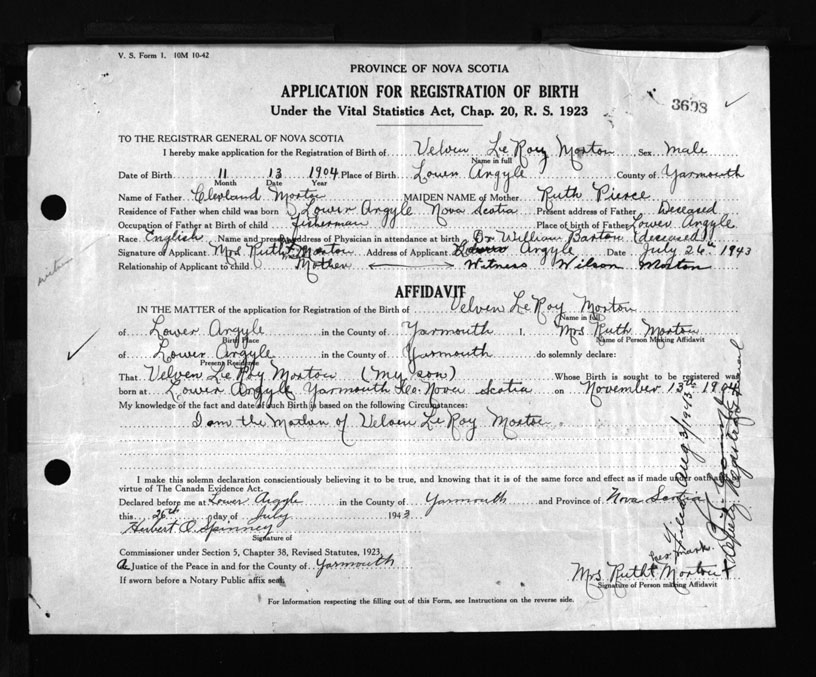 V. S. Form 1. 10M 10-42
PROVINCE OF NOVA SCOTIA
APPLICATION FOR REGISTRATION OF BIRTH
Under the Vital Statistics Act, Chap. 20, R. S. 1923
3698
TO THE REGISTRAR GENERAL OF NOVA SCOTIA
I hereby make application for the Registration of Birth of Velven Le Roy Morton Sex Male
Name in full
Date of Birth 11 13 1904 Place of Birth Lower Argyle County of Yarmouth
Month Date Year
Name of Father Cleveland Morton MAIDEN NAME of Mother Ruth Pierce
Residence of Father when child was born Lower Argyle Nova Scotia Present address of Father Deceased
Occupation of Father at Birth of child Fisherman Place of birth of Father Lower Argyle
Race English Name and present address of Physician in attendance at birth Dr William Barton (deceased)
Signature of Applicant Mrs Ruth Morton Address of Applicant Lower Argyle Date July 26th 1943
Relationship of Applicant to child Mother Witness Wilson Morton
AFFIDAVIT
IN THE MATTER of the application for Registration of the Birth of Velven Le Roy Morton
Name in full
of Lower Argyle in the County of Yarmouth I, Mrs Ruth Morton
Birth Place Name of Person Making Affidavit
of Lower Argyle in the County of Yarmouth do solemnly declare:
Present Residence
That Velven Le Roy Morton (my son) Whose Birth is sought to be registered was
born at Lower Argyle Yarmouth Co. Nova Scotia on November 13th 1904
My knowledge of the fact and date of such Birth is based on the following Circumstances:
I am the Mother of Velven Le Roy Morton
I make this solemn declaration conscientiously believing it to be true, and knowing that it is of the same force and effect as if made under oath
virtue of The Canada Evidence Act.
Declared before me at Lower Argyle in the County of Yarmouth and Province of Nova Scotia
this 26th day of July 1943
Herbert O. Spinney
Signature of
Commissioner under Section 5, Chapter 38, Revised Statutes, 1923,
A Justice of the Peace in and for the County of Yarmouth
If sworn before a Notary Public affix seal
her mark
Mrs Ruth + Morton
Signature of Person making Affidavit
For Information respecting the filling out of this Form, see Instructions on the reverse side.
Filed Aug 3/1943
Deputy Registrar General